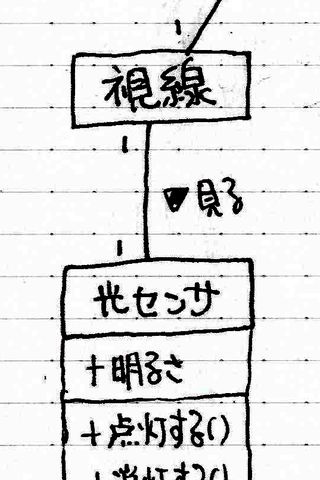 1
視線
1
▼見る
1
光センサ
+明るさ
+点灯する()
+消灯する()